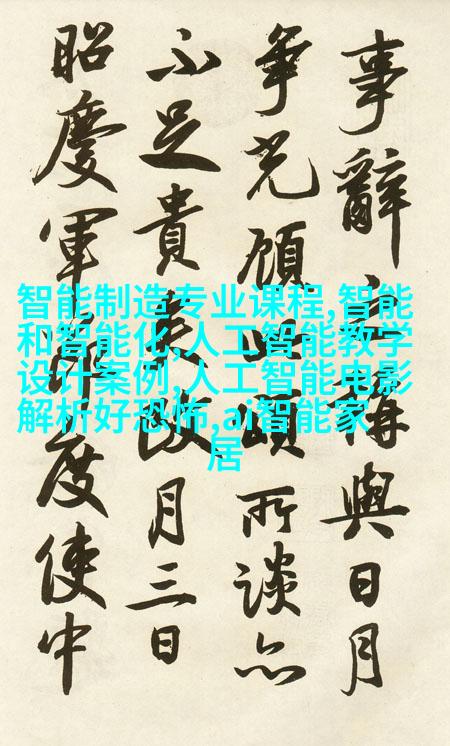 事辭稱與日月
爭光顧此頌所談亦
不足貴月三日
昭慶軍節度使中
智能制造专业课程,智能
和智能化,人工智能教学
设计案例,人工智能电影
解析好恐怖,ai智能家
居